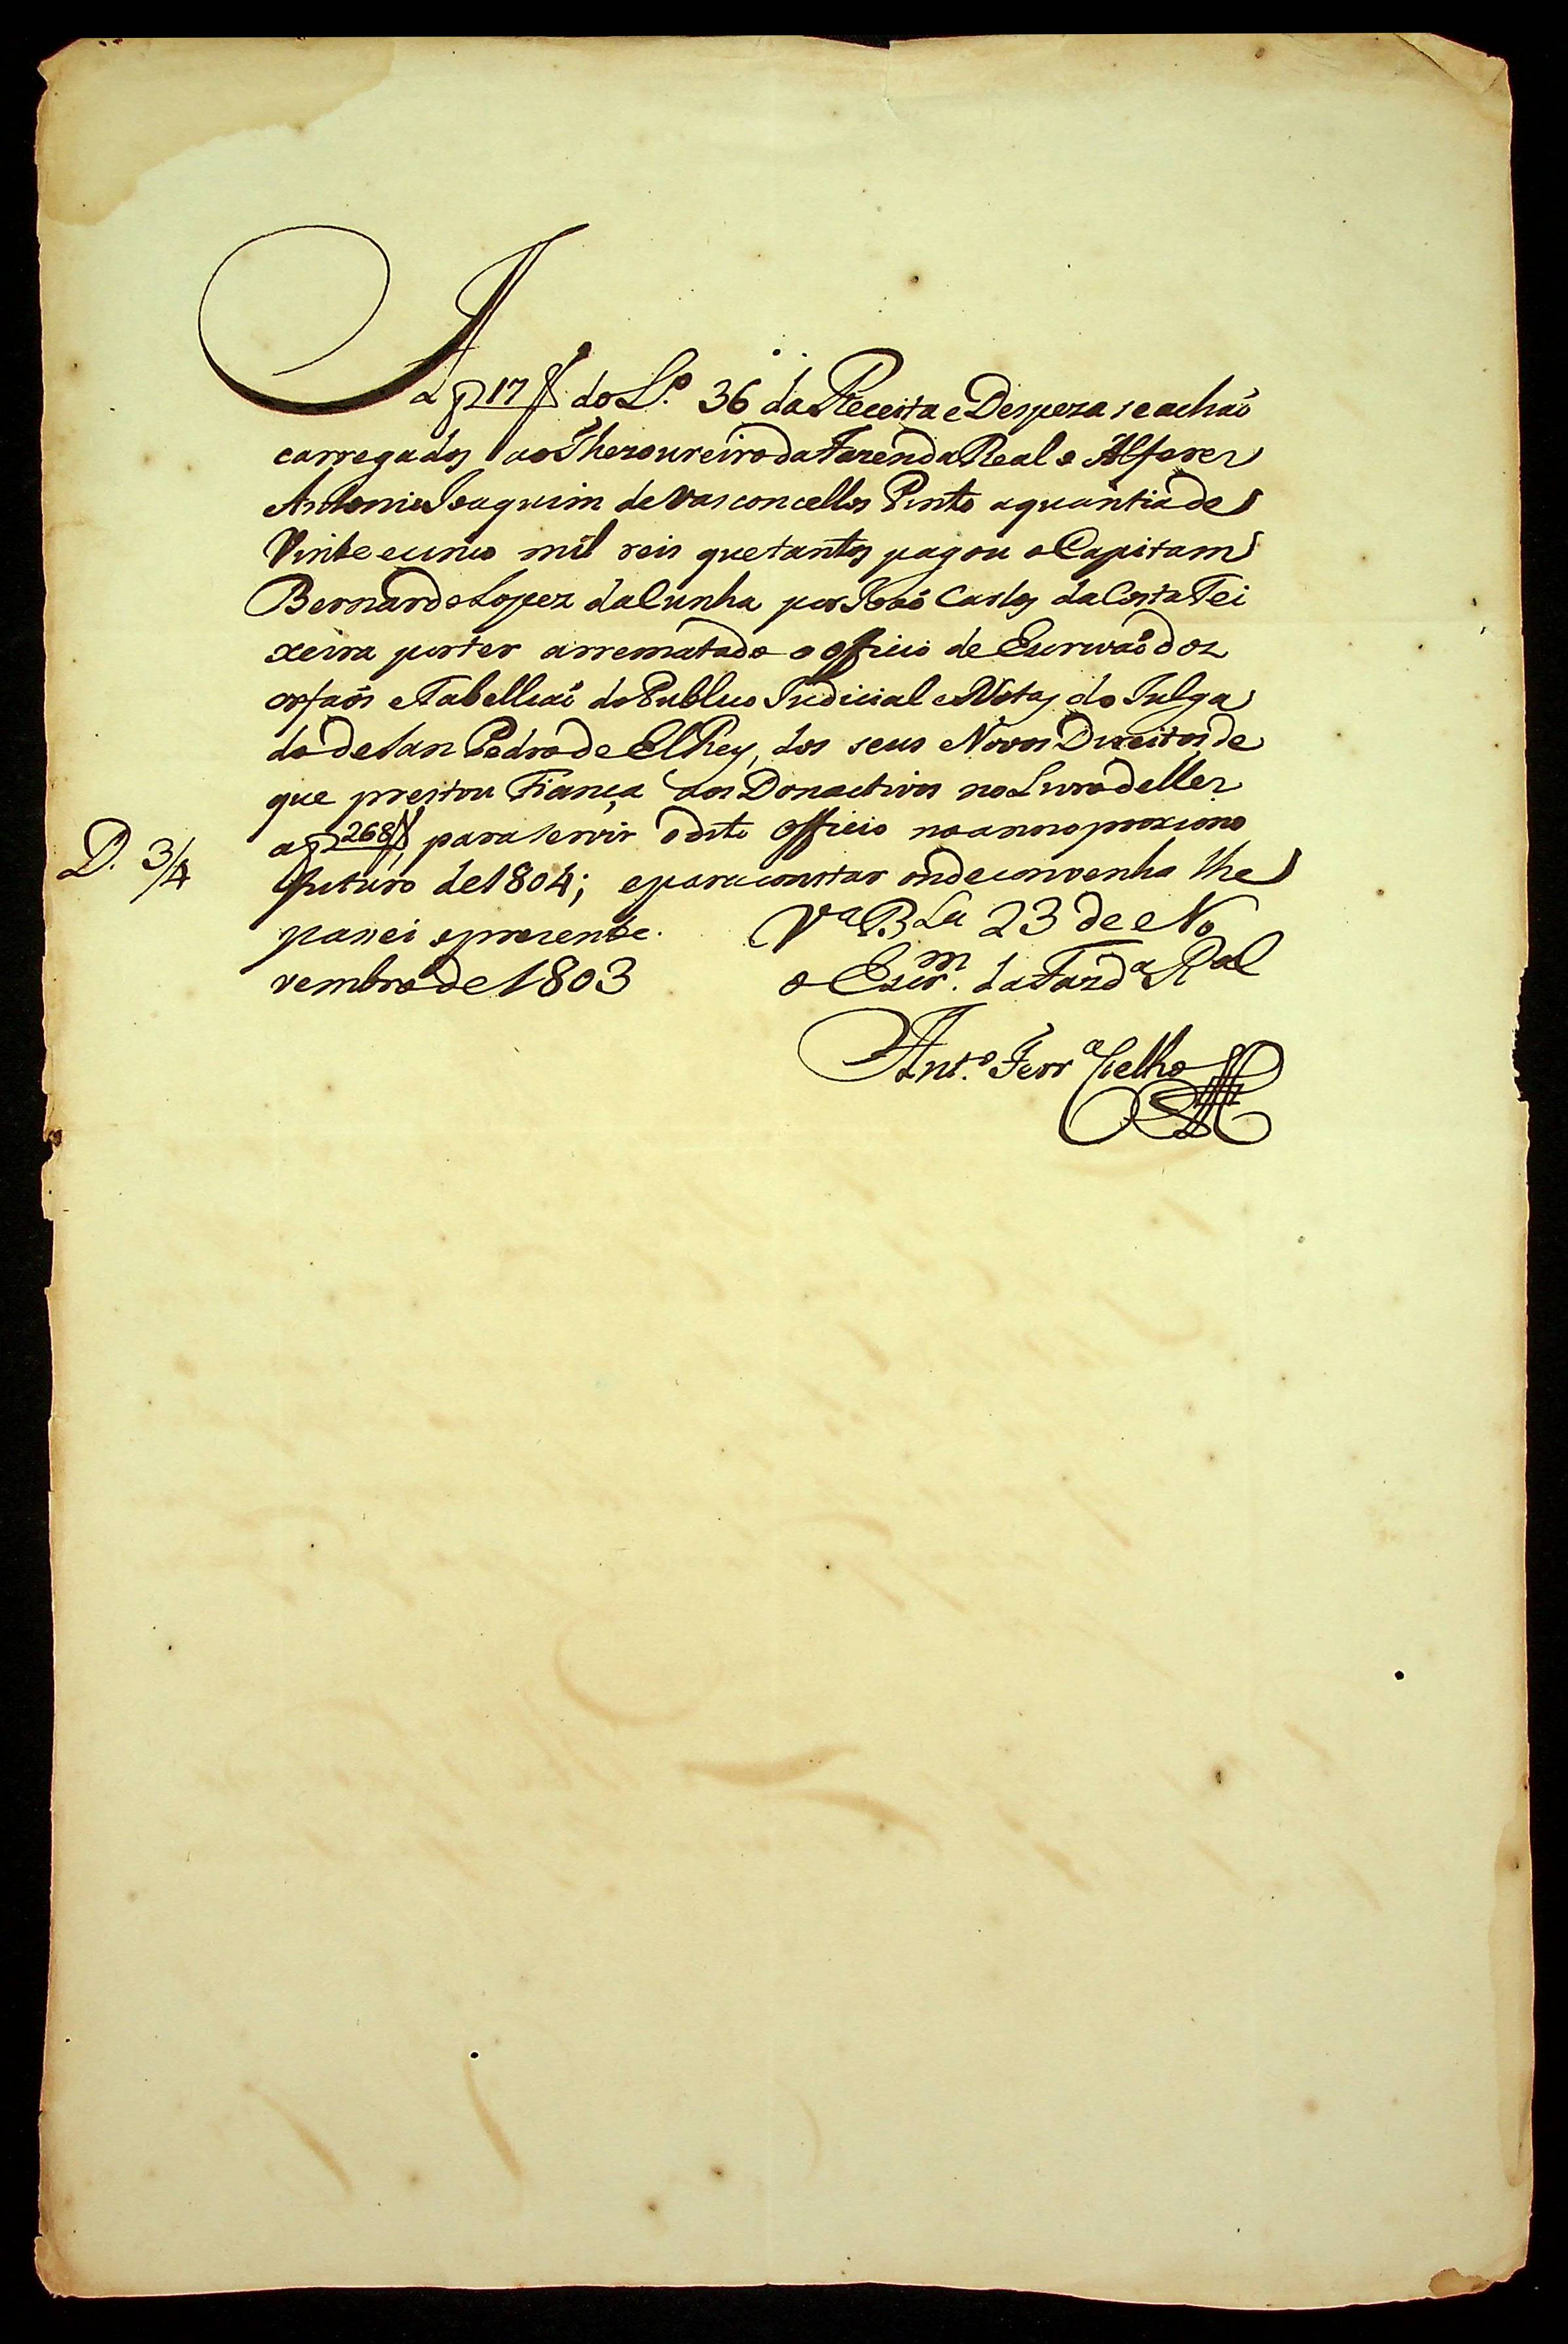 A f 17 f do L.º 36 da Receita e Despeza se achaõ
carregados ao Thezoureiro da Fazenda Real o Alferez
Antonio Joaquim de Vasconcellos Pinto a quantia de
Vinte e cinco mil reis que tantos pagou o Capitam
Bernardo Lopez da Cunha por Joaõ Carlos da Costa Tei
xeira por ter arrematado o officio de Escrivaõ dos
orfaõs e Tabelliaõ do Publico Judicial e Notas do Julga
do de San Pedro de El Rey, dos seus Novos Direitos de
que prestou Fiança aos Donactivos no Livro delles
D. 3/4
a f 268 f, para servir o dito officio no anno proximo
futuro de 1804; e para constar onde convenha lhe
passei o prezente. Vª Bª 23 de No
vembro de 1803 o Escr.m da Fazdª Ral
Ant.º Ferrª Coelho